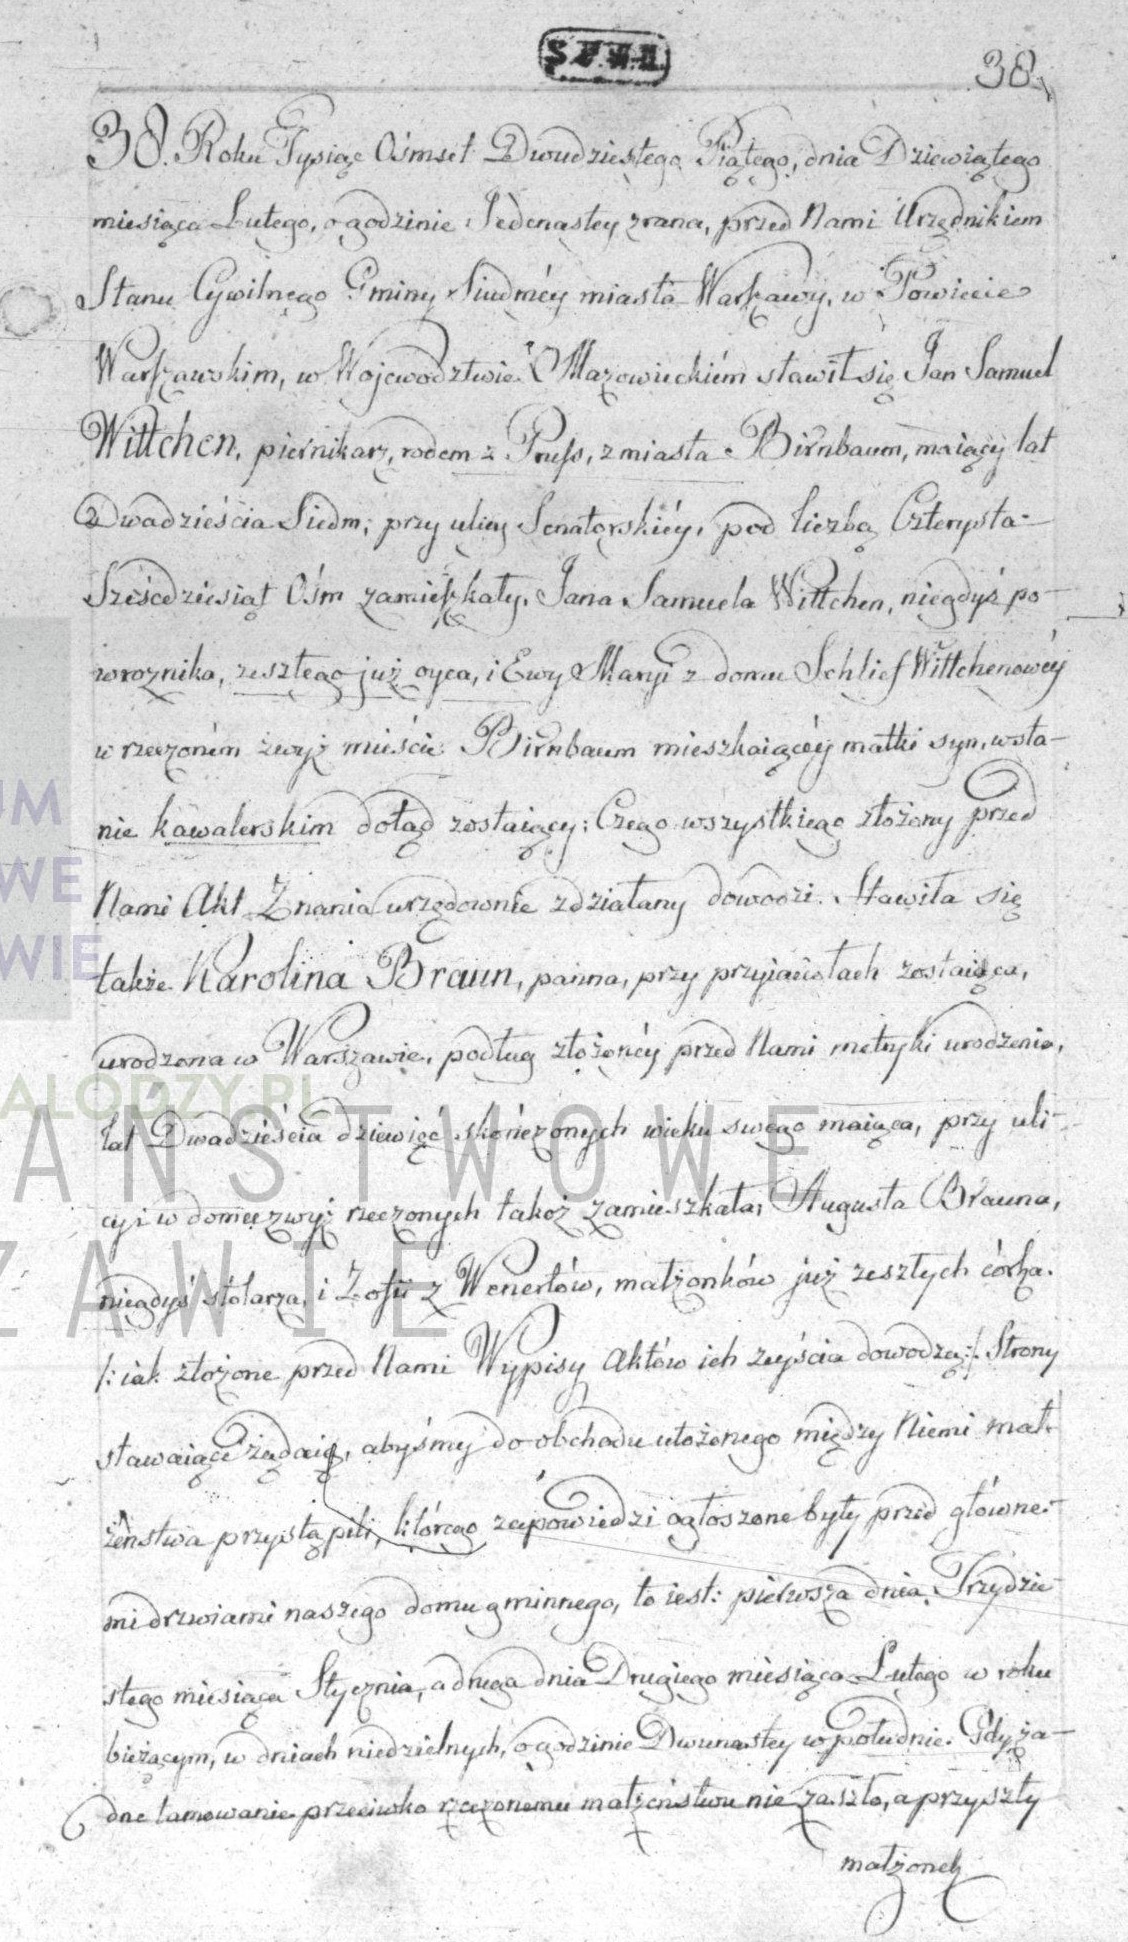 S.P.W.II.
38.
38. Roku Tysiąc Ośmset Dwudziestego Piątego, dnia Dziewiątego
miesiąca Lutego, o godzinie Jedenastey zrana, przed Nami Urzędnikiem
Stanu Cywilnego Gminy Siudméy miasta Warszawy, w Powiecie
Warszawskim, w Wojewodztwie Mazowieckiém stawił się Jan Samuel
Wittchen, piernikarz, rodem z Pruss, z miasta Birnbaum, maiący lat
Dwadzieścia Siedm; przy ulicy Senatorskiéy, pod liczbą Czterysta-
Sześćdziesiąt Ośm zamieszkały, Jana Samuela Wittchen, niegdyś po-
wroznika, zeszłego już oyca, i Ewy Maryi z domu Schlief Wittchenowéy
w rzeczoném zwyż mieście Birnbaum mieszkaiącéy matki syn, w sta-
nie kawalerskim dotąd zostaiący; Czego wszystkiego złożony przed
Nami Akt Znania urzędownie zdziałany dowodzi. Stawiła się
także Karolina Braun, panna, przy przyjaciołach zostaiąca,
urodzona w Warszawie, podług złożonéy przed Nami metryki urodzenia,
lat Dwadzieścia dziewięć skończonych wieku swego maiąca, przy uli-
cy i w domu zwyż rzeczonych takoż zamieszkała, Augusta Brauna,
niegdyś stolarza, i Zofii z Wenertów, małżonków już zeszłych córka.
/: iak złożone przed Nami Wypisy Aktów ich zeyścia dowodzą :/ Strony
stawaiące żądaią, abyśmy do obchodu ułożonego między Niemi mał-
żeństwa przystąpili, którego zapowiedzi ogłoszone były przed główne-
mi drzwiami naszego domu gminnego, to iest: pierwsza dnia Trzydzie-
stego miesiąca Stycznia, a druga dnia Drugiego miesiąca Lutego w roku
bieżącym, w dniach niedzielnych, o godzinie Dwunastey w południe. Gdy ża-
dne tamowanie przeciwko rzeczonému małżeństwu nie zaszło, a przyszły
małżonek
UM
WE
WIE
ALODZY.PL
AŃSTWOWE
ZAWIE